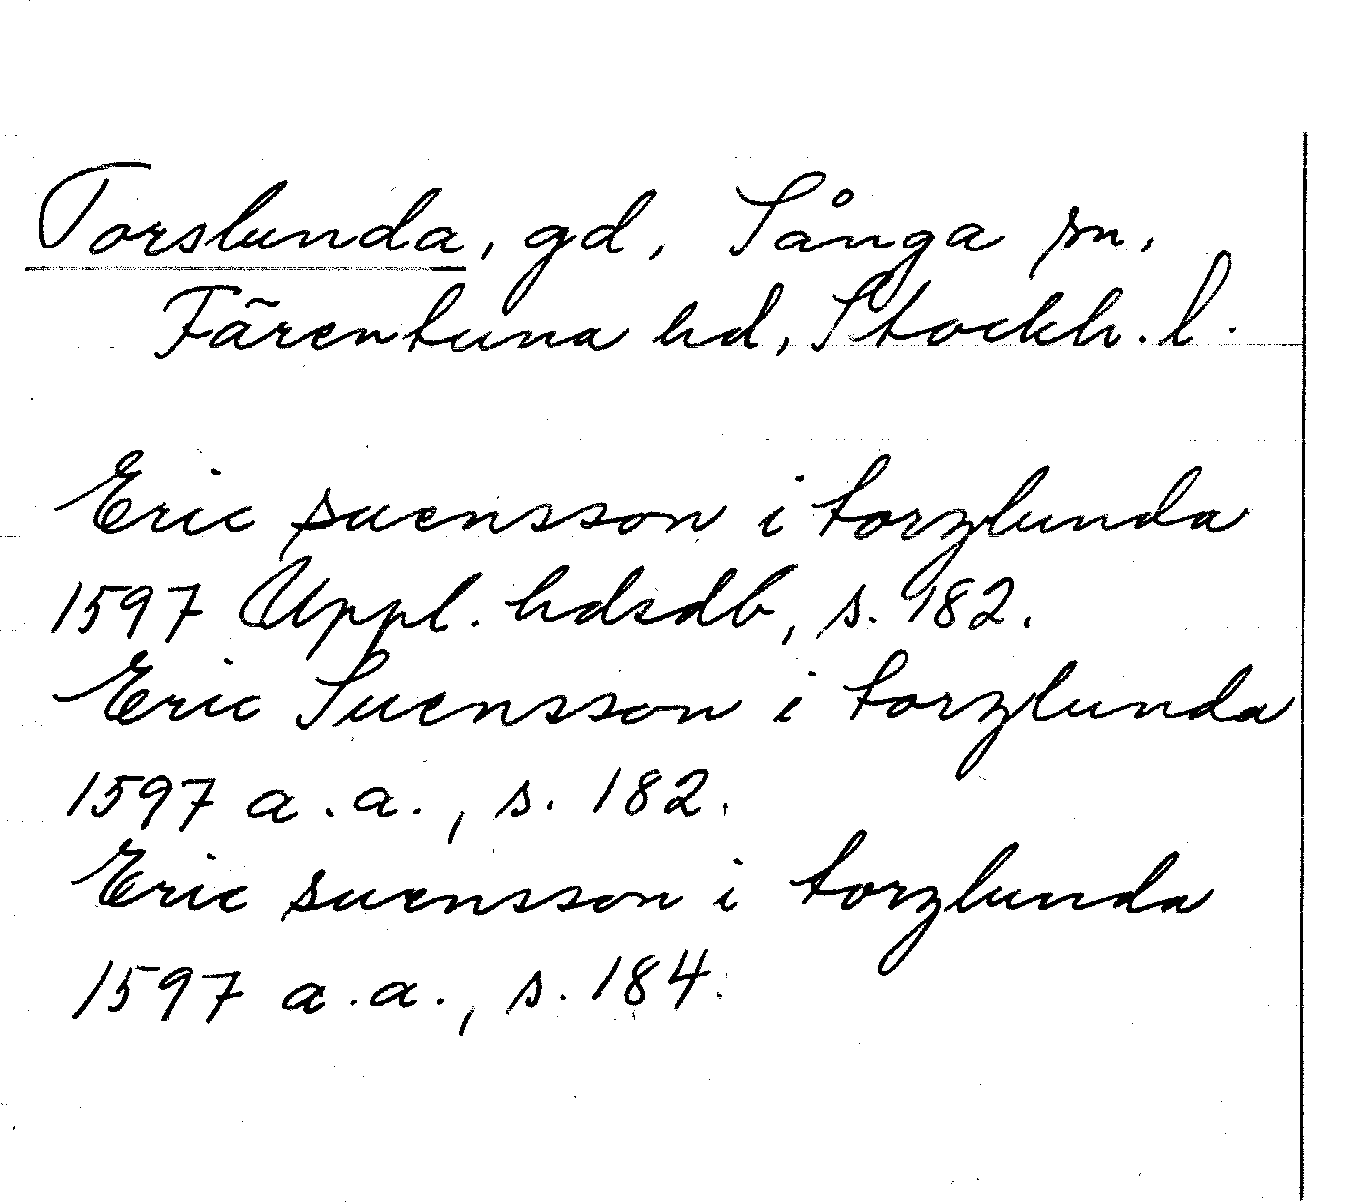 Torslunda, gd, Sånga sn,
Färentuna hd, Stockh. l.
Eric suensson i torzlunda
1597 Uppl. hdsdb, s. 182.
Eric Suensson i torzlunda
1597 a.a., s. 182.
Eric suensson i torzlunda
1597 a.a., s. 184.